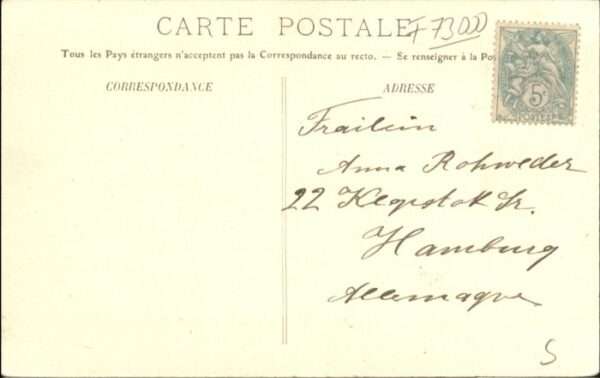 CARTE POSTALE
F 73000
Tous les Pays étrangers n'acceptent pas la Correspondance au recto. — Se renseigner à la Pos
CORRESPONDANCE
ADRESSE
5c
POSTES
Frailein
Anna Rohweder
22 Klopstok Sr.
Hamburg
Allemagne
S